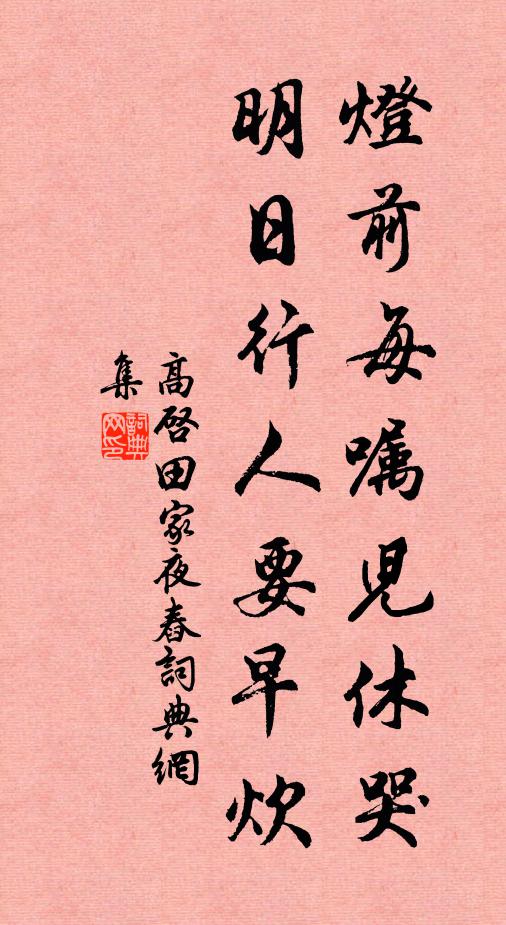 燈前每嘱兒休哭
明日行人要早炊
高启田家夜舂詞典網
集
詞典网印